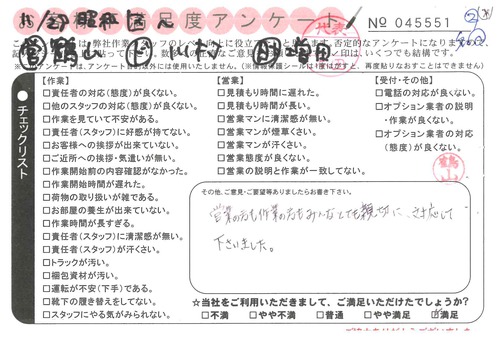 満足度アンケート
№ 045551
チェックリスト
【作業】
□責任者の対応(態度)が良くない。
□他のスタッフの対応(態度)が良くない。
□作業を見ていて不安がある。
□責任者(スタッフ)に好感が持てない。
□お客様への挨拶が出来ていない。
□ご近所への挨拶・気遣いが無い。
□作業開始前の内容確認がなかった。
□作業開始時間が遅れた。
□荷物の取り扱いが雑である。
□お部屋の養生が出来ていない。
□作業時間が長すぎる。
□責任者(スタッフ)に清潔感が無い。
□責任者(スタッフ)が汗くさい。
□トラックが汚い。
□梱包資材が汚い。
□運転が安全(下手)である。
□靴下の履き替えをしてない。
□スタッフにやる気がみられない。
【営業】
□見積もり時間に遅れた。
□見積もり時間が長い。
□営業マンに清潔感が無い。
□営業マンが煙草くさい。
□営業マンが汗くさい。
□営業態度が良くない。
□営業の説明と作業が一致してない。
【受付・その他】
□電話の対応が良くない。
□オプション業者の説明・作業が良くない。
□オプション業者の対応(態度)が良くない。
その他、ご意見・ご要望等ありましたらお書き下さい。
営業の方も作業の方もみんなとても親切に、対応して
下さいました。
☆当社をご利用いただきまして、ご満足いただけたでしょうか?
□不満 □やや不満 □普通 □やや満足 □満足